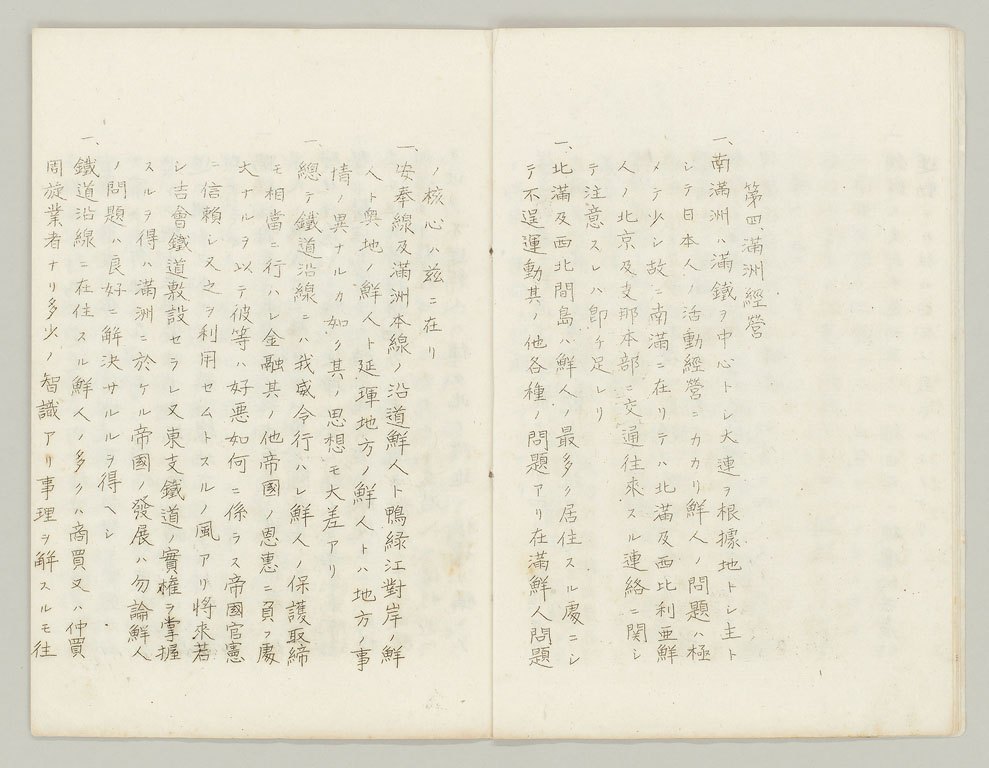 第四、滿洲經營
一、南滿洲ハ滿鐵ヲ中心トシ大連ヲ根據地トシ主ト
シテ日本人ノ活動經營ニカカリ鮮人ノ問題ハ極
メテ少シ故ニ南滿ニ在リテハ北滿及西比利亜鮮
人ノ北京及支那本部ニ交通往來スル連絡ニ関シ
テ注意スレハ即チ足レリ
一、北滿及西北間島ハ鮮人ノ最多ク居住スル處ニシ
テ不逞運動其ノ他各種ノ問題アリ在滿鮮人問題
ノ核心ハ茲ニ在リ
一、安奉線及滿洲本線ノ沿道鮮人ト鴨緑江對岸ノ鮮
人ト奥地ノ鮮人ト延琿地方ノ鮮人トハ地方ノ事
情ノ異ナルカ如ク其ノ思想モ大差アリ
一、總テ鐵道沿線ニハ我威令行ハレ鮮人ノ保護取締
モ相當ニ行ハレ金融其ノ他帝國ノ恩惠ニ負フ處
大ナルヲ以テ彼等ハ好惡如何ニ係ラス帝國官憲
ニ信賴シ又之ヲ利用セムトスルノ風アリ將來若
シ吉會鐵道敷設セラレ又東支鐵道ノ實權ヲ掌握
スルヲ得ハ滿洲ニ於ケル帝國ノ發展ハ勿論鮮人
ノ問題ハ良好ニ解決サルルヲ得ヘシ
一、鐵道沿線ニ在住スル鮮人ノ多クハ商買又ハ仲買
周旋業者ナリ多少ノ智識アリ事理ヲ解スルモ往